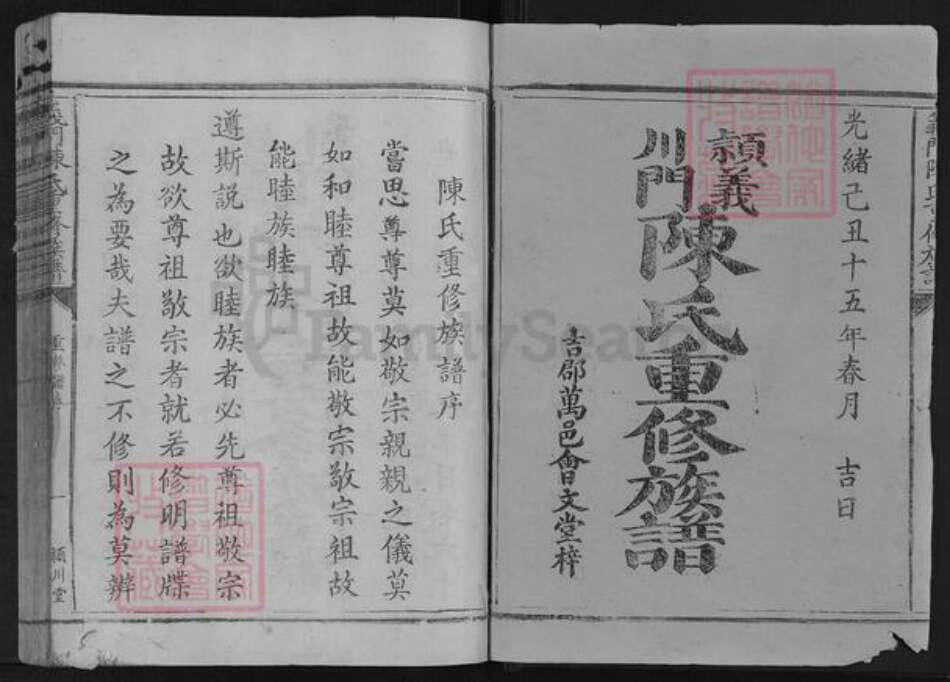 光緒己丑十五年春月 吉日
義門
潁川
陳氏重修族譜
吉郡萬邑會文堂梓
陳氏重修族譜序
嘗思尊尊莫如敬宗親親之儀莫
如和睦尊祖故能敬宗敬宗祖故
能睦族睦族
遵斯說也欲睦族者必先尊祖敬宗
故欲尊祖敬宗者就若修明譜牒
之為要哉夫譜之不修則為莫辨
一
潁川堂
FamilySearch
5